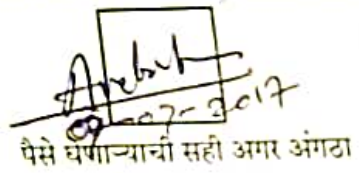 07-07-2017
पैसे घेणाऱ्याची सही अगर अंगठा